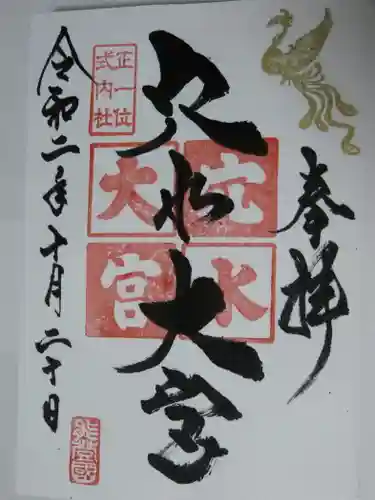 奉拝
穴水大宮
穴水
大宮
正一位
式内社
令和二年十月二十日
能登國